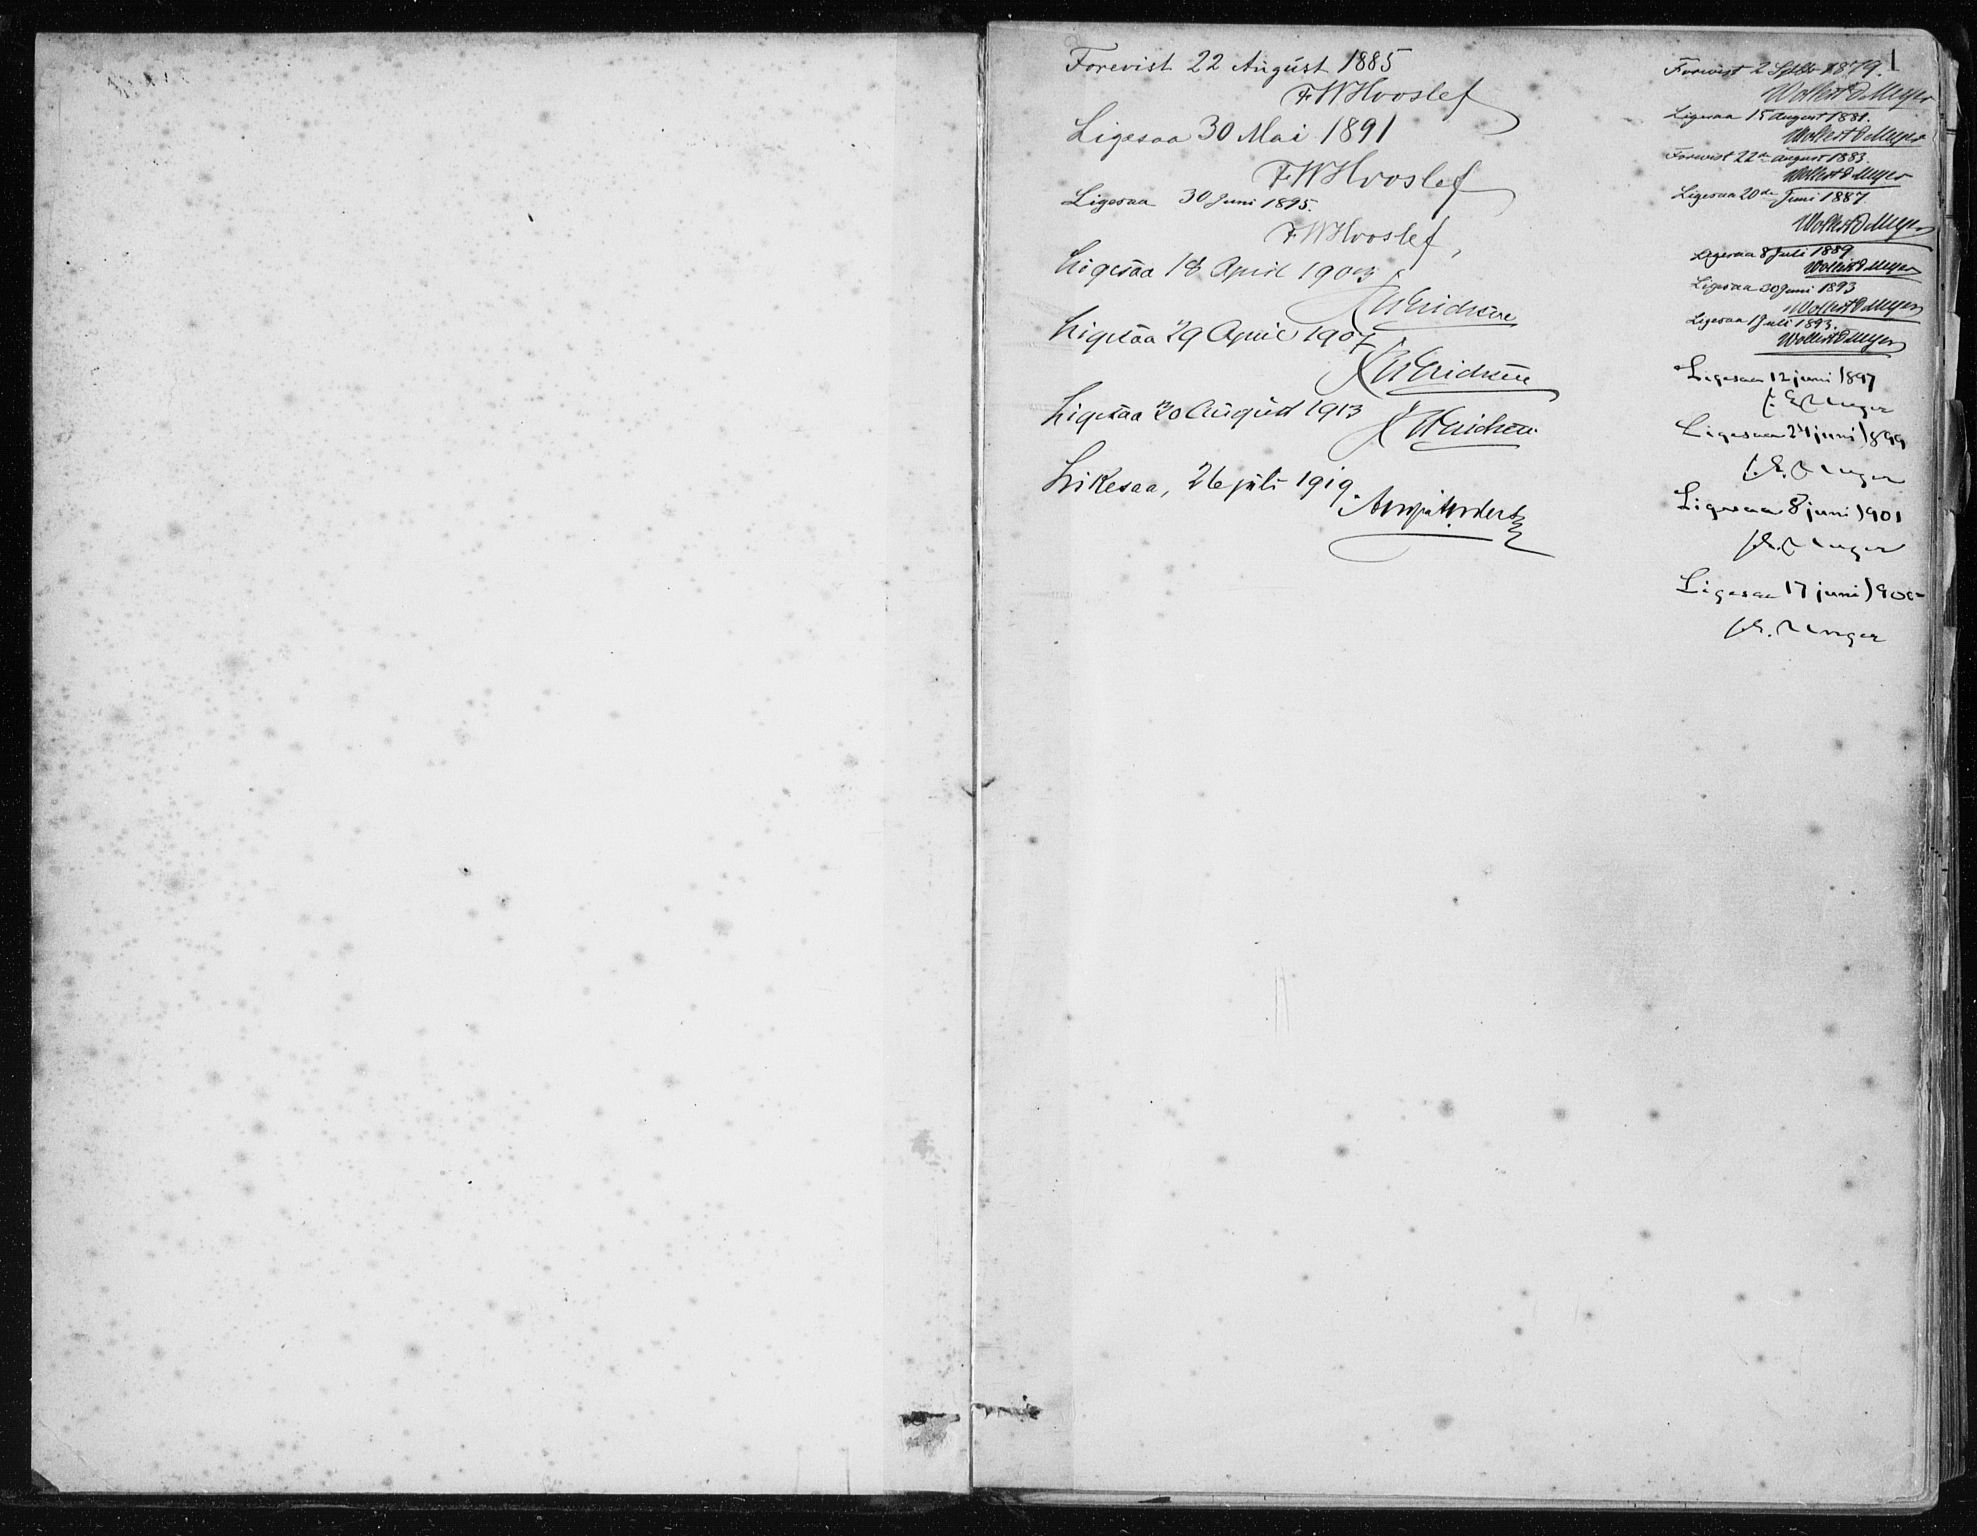 Forevist 22 August 1885
FWHvoslef
Ligesaa 30 Mai 1891
FWHvoslef
Ligesaa 30 Juni 1895.
FWHvoslef
Ligesaa 18 April 1903
Erichsen
Ligesaa 29 April 1907
Erichsen
Ligesaa 30 August 1913
Erichsen
Likesaa, 26 juli 1919.
1
Forevist 2 Septbr 1879.
Wollert D Meyer
Ligesaa 15 August 1881.
Wollert D Meyer
Forevist 22de August 1883.
Wollert D Meyer
Ligesaa 20de Juni 1887.
Wollert D Meyer
Ligesaa 8 Juli 1889
Wollert D Meyer
Ligesaa 30 Juni 1893
Wollert D Meyer
Ligesaa 1 Juli 1893.
Wollert D Meyer
Ligesaa 12 juni 1897
Unger
Ligesaa 24 juni 1899
Unger
Ligesaa 8 juni 1901
Unger
Ligesaa 17 juni
Unger